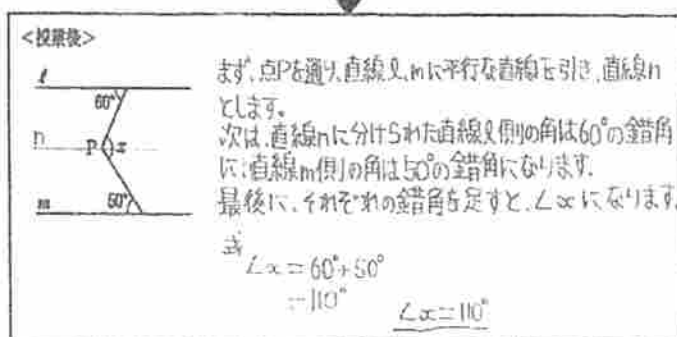 <授業後>
ℓ
60°
n
P
x
m
50°
まず、点Pを通り、直線ℓ、mに平行な直線を引き、直線n
とします。
次は、直線nに分けられた直線ℓ側の角は60°の錯角
に、直線m側の角は50°の錯角になります。
最後に、それぞれの錯角を足すと、∠xになります。
式
∠x=60°+50°
=110°
∠x=110°